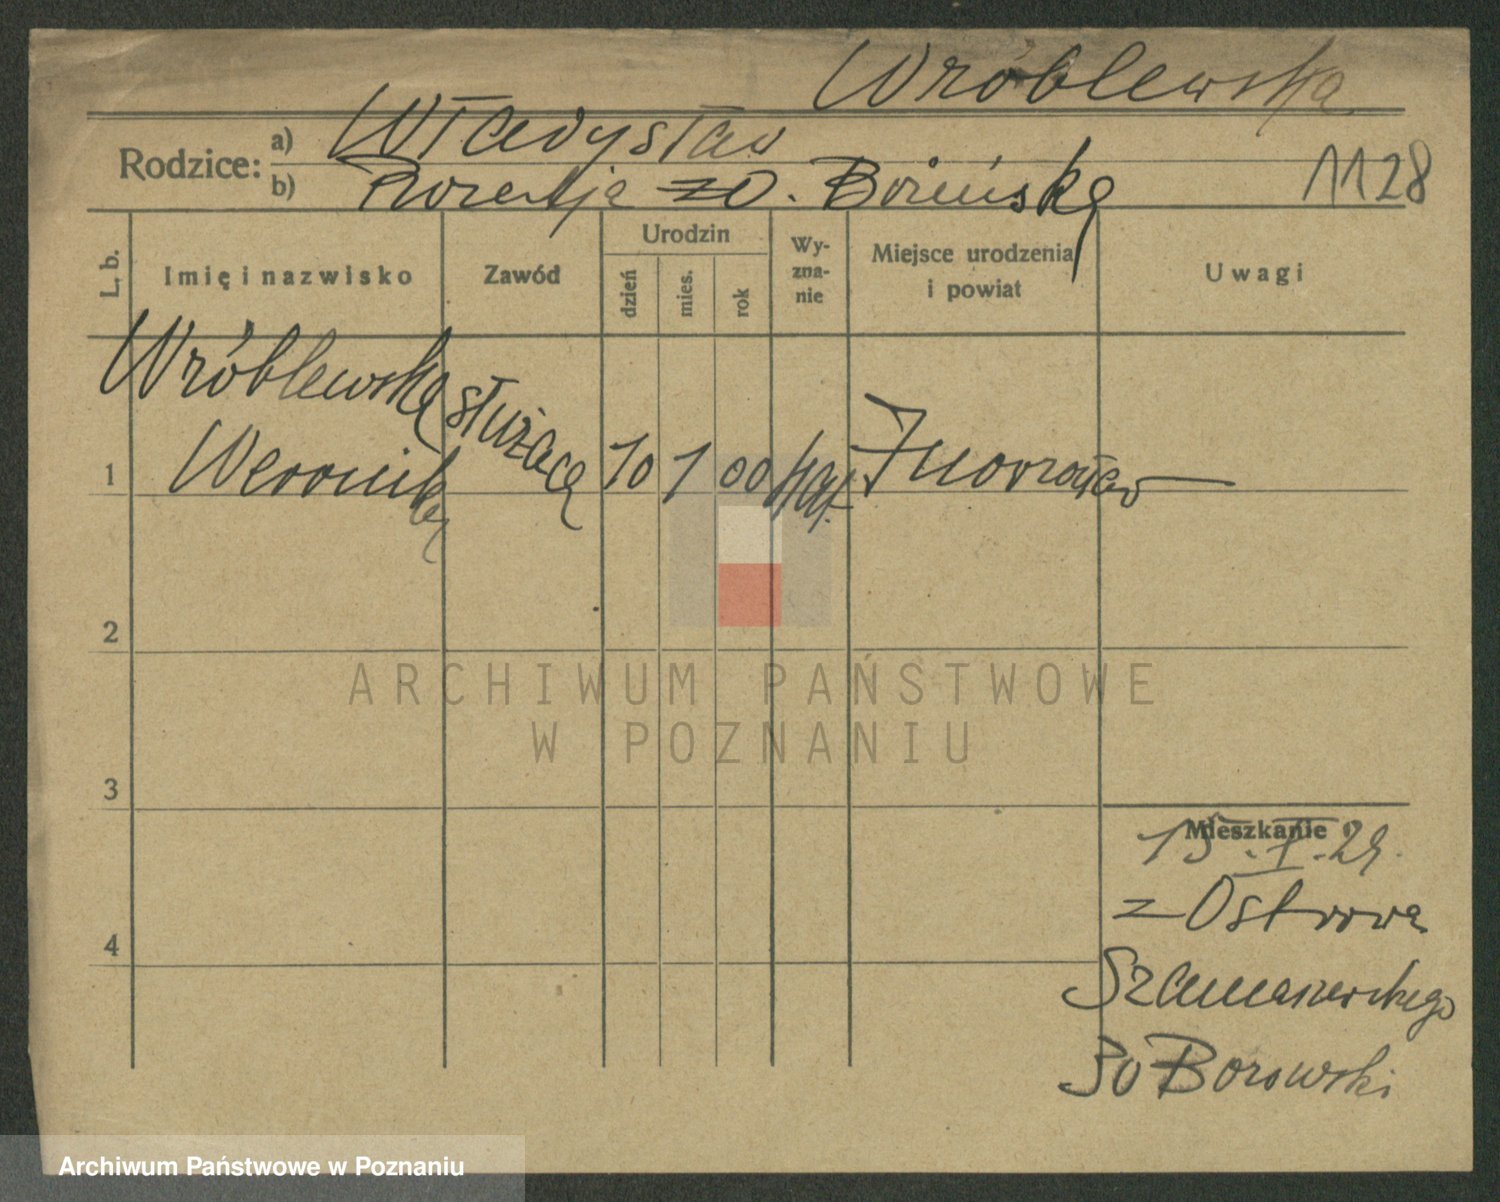 Wróblewska
Rodzice:
a) Władysław
b) zd. Bożeńska
1128
L. b.
Imię i nazwisko
Zawód
Urodzin
dzień
mies.
rok
Wy-
zna-
nie
Miejsce urodzenia
i powiat
Uwagi
Wróblewska służąca
1 Weronika 10 1 00 kat. Inowrocław
2
3
4
Mieszkanie
15.I.29.
z Ostrowa
Szamarzewskiego
30 Borowski
ARCHIWUM PAŃSTWOWE
W POZNANIU
Archiwum Państwowe w Poznaniu